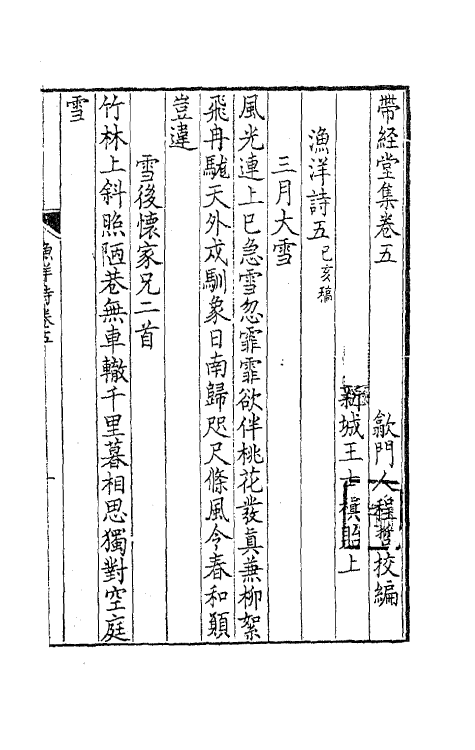 帶經堂集卷五
歙門人程哲校編
漁洋詩五己亥稿
新城王士禛貽上
三月大雪
風光連上巳急雪忽霏霏欲伴桃花發真兼柳絮
飛冉駹天外戍馴象日南歸咫尺條風今春和願
豈違
雪後懷家兄二首
竹林上斜照陋巷無車轍千里暮相思獨對空庭
雪
漁洋詩卷五
一